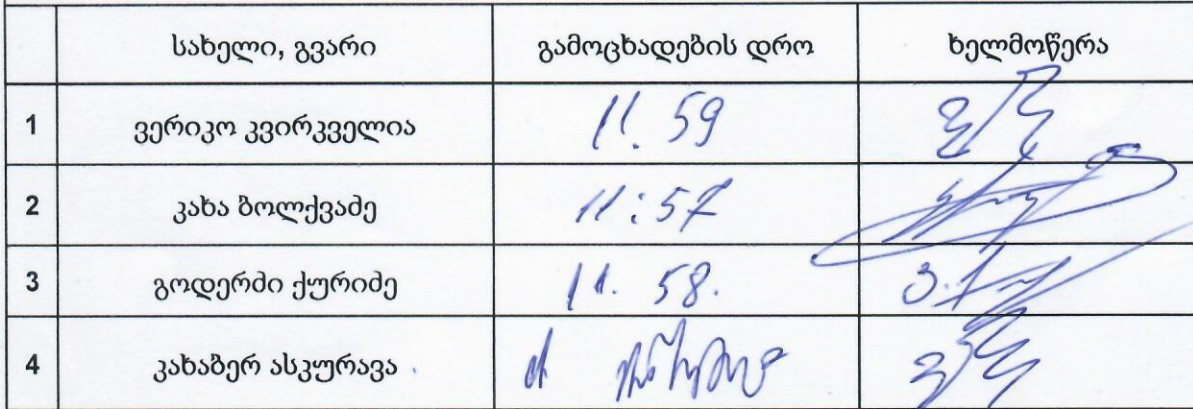 სახელი, გვარი გამოცხადების დრო ხელმოწერა
1 ვერიკო კვირკველია 11.59
2 კახა ბოლქვაძე 11:57
3 გოდერძი ქურიძე 11.58.
4 კახაბერ ასკურავა